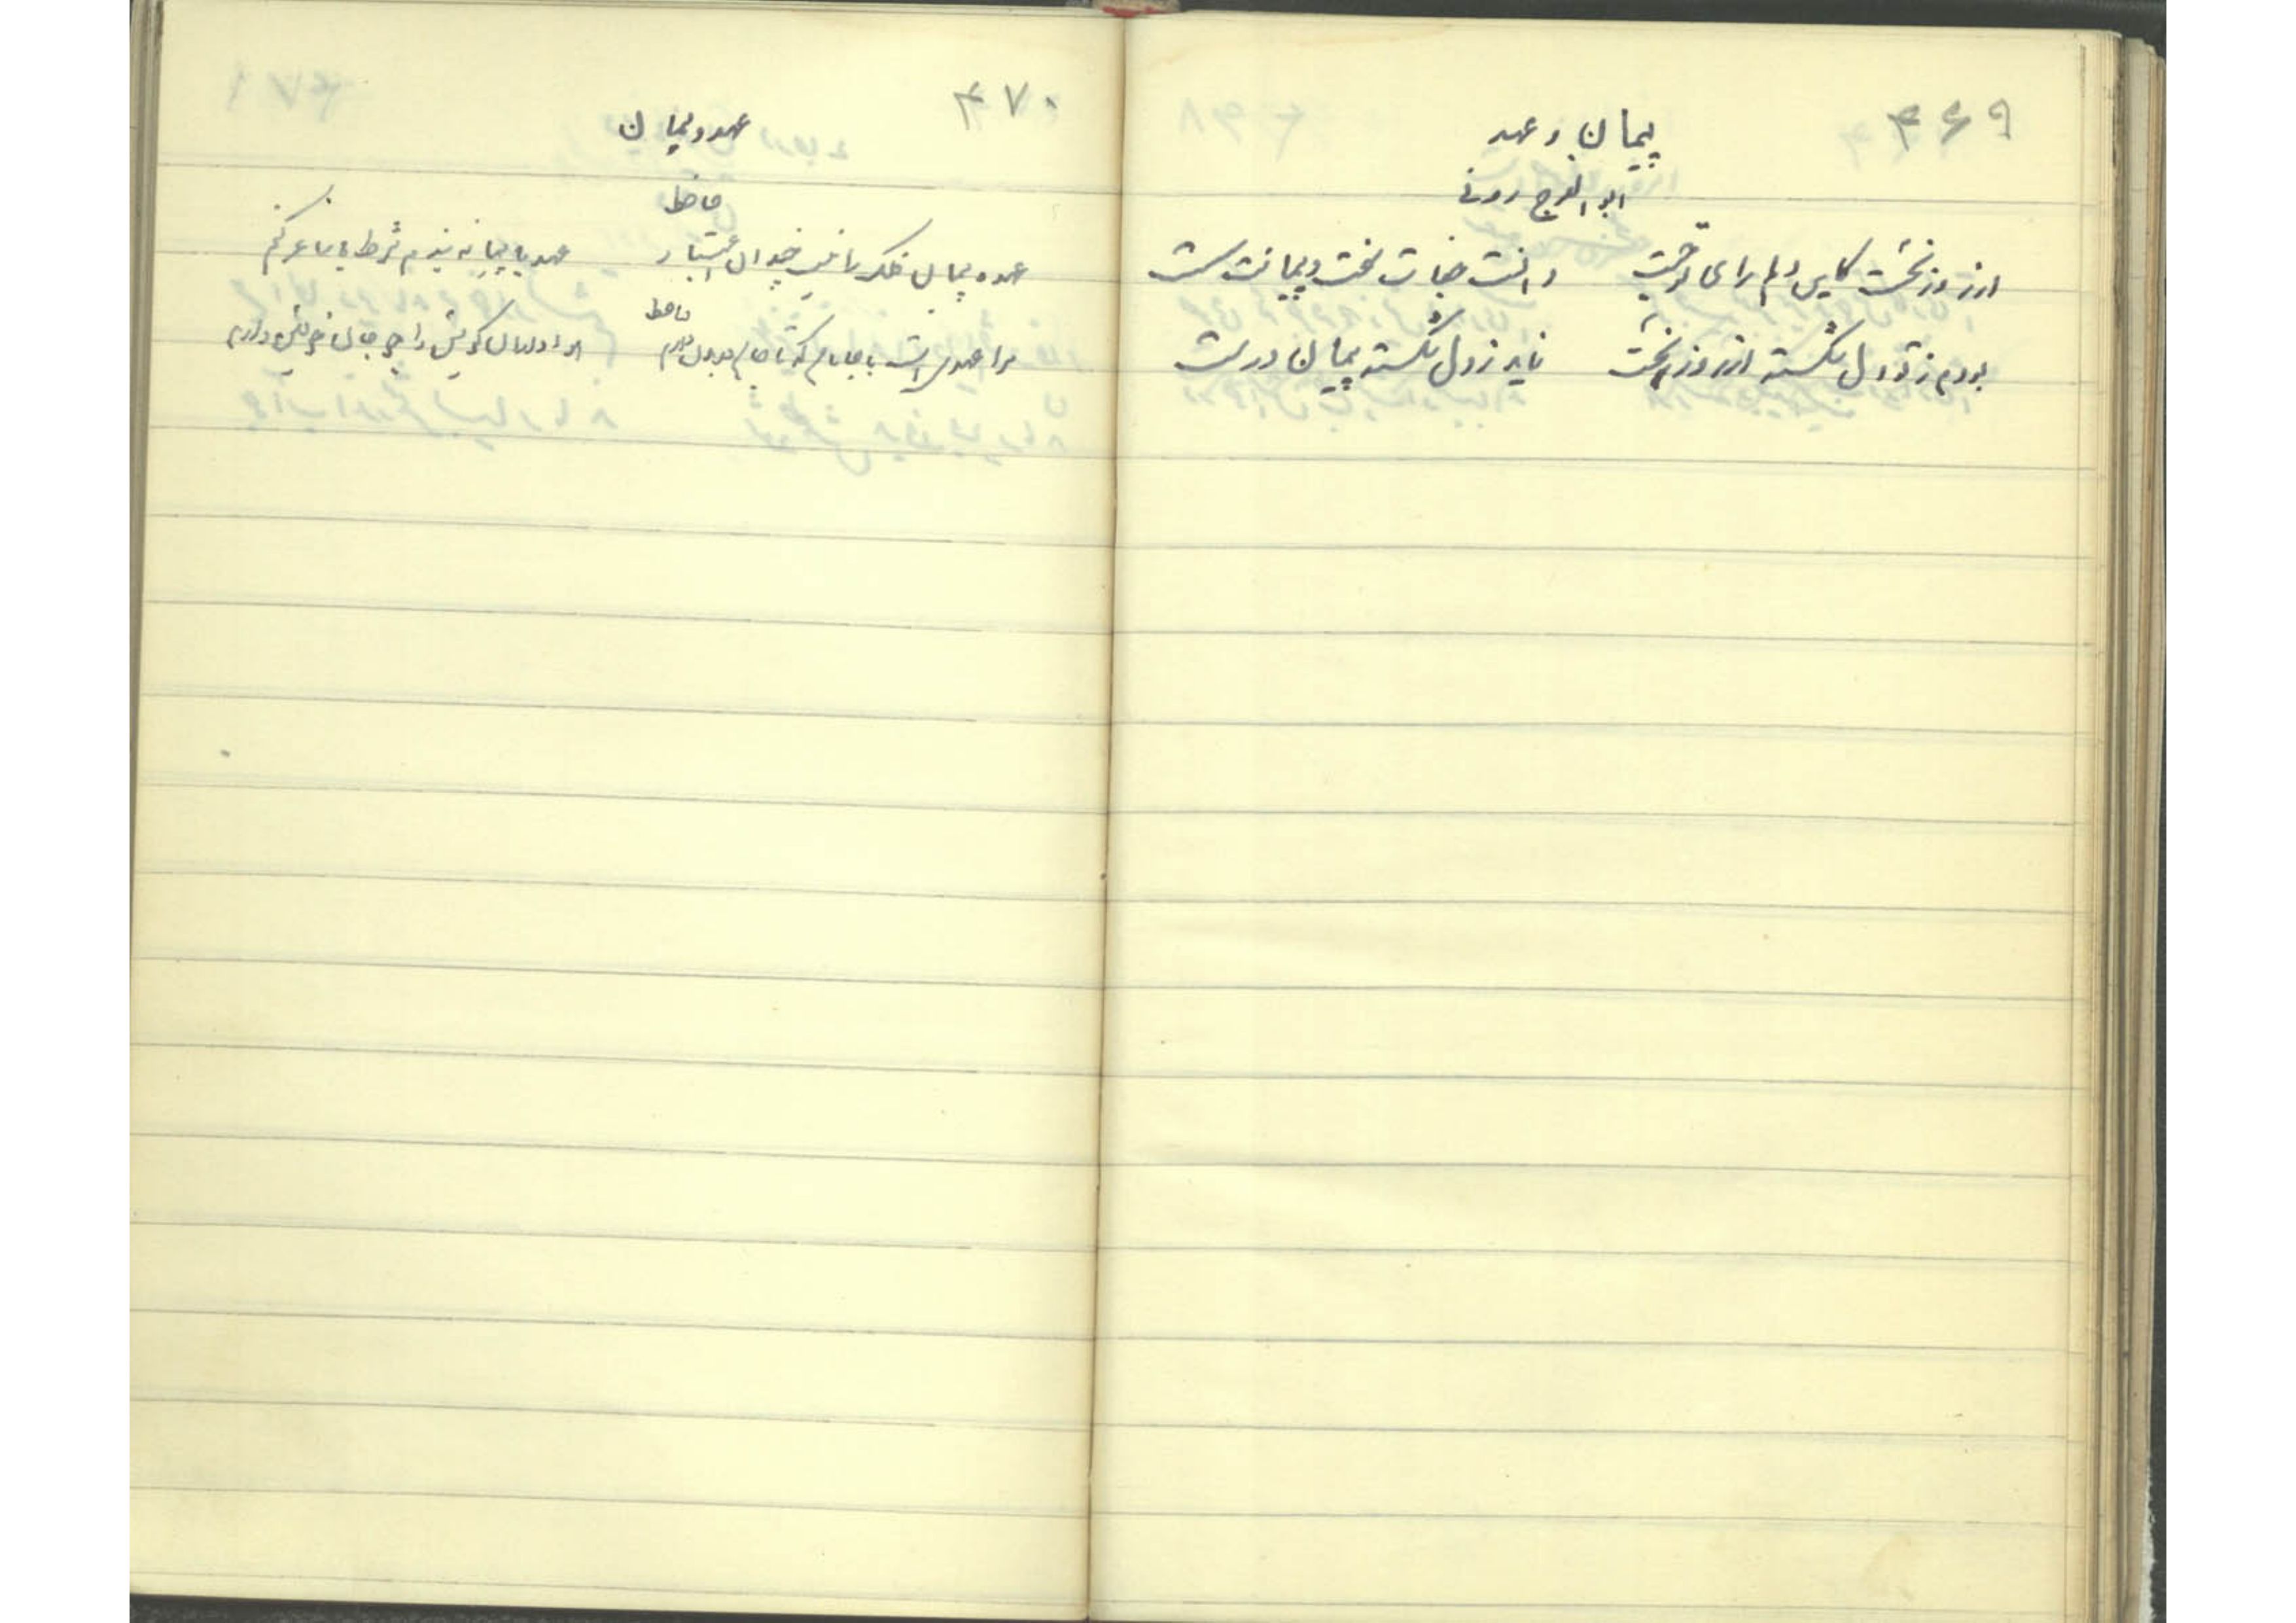 ۴۶۹
پیمان و عهد
ابوالفرج رونی
از روز نخست کاین دلم رای تو جست دانست جفات سخت و پیمانت سست
بودم ز تو دل شکسته از روز نخست ناید ز دل شکسته پیمان درست
۴۷۰
عهد و پیمان
حافظ
عهد و پیمان فلک را نیست چندان اعتبار عهد با پیمانه بندم شرط با ساغر کنم
حافظ
مرا عهدیست با جانان که تا جان در بدن دارم هواداران کویش را چو جان خویشتن دارم